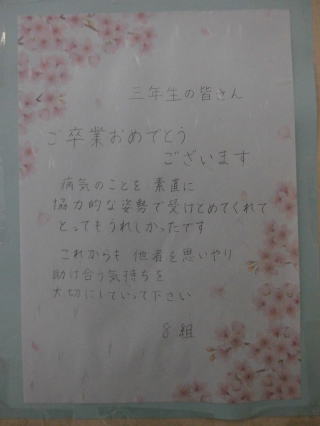 三年生の皆さん
ご卒業おめでとう
ございます
病気のことを 素直に
協力的な姿勢で受けとめてくれて
とってもうれしかったです
これからも 他者を思いやり
助け合う気持ちを
大切にしていって下さい
8組